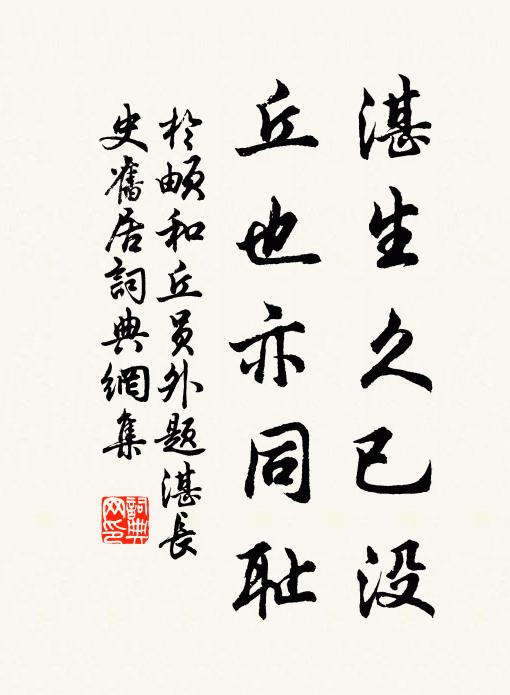 湛生久已没
丘也亦同耻
於頔和丘員外題湛長
史舊居詞典網集
詞典网印